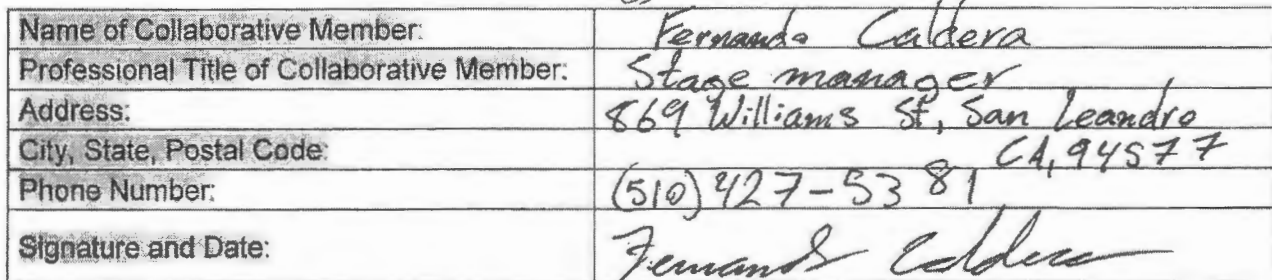 Name of Collaborative Member: Fernando Caldera
Professional Title of Collaborative Member: Stage manager
Address: 869 Williams St, San Leandro
City, State, Postal Code: CA, 94577
Phone Number: (510) 427-5381
Signature and Date: Fernando Caldera